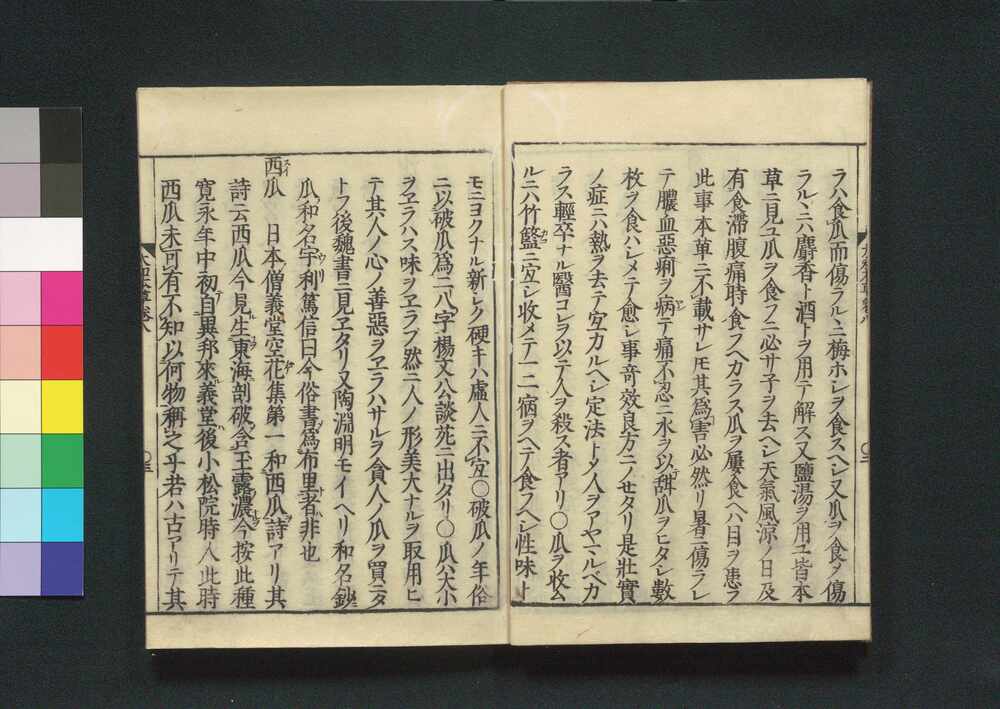 ラハ食瓜而傷ラルヽニ梅ホシヲ食スヘシ又瓜ヲ食メ傷
ラルヽニハ麝香ト酒トヲ用テ解ス又鹽湯ヲ用ユ皆本
草ニ見ユ瓜ヲ食フニ必サ子ヲ去ヘシ天氣風涼ノ日及
有食滞腹痛時食フヘカラス瓜ヲ屢食ヘハ目ヲ患フ
此事本草ニ不載サレ𪜈其為害必然リ暑ニ傷ラレ
テ膿血惡痢ヲ病テ痛不忍ニ水ヲ以甜瓜ヲヒタシ數
枚ヲ食ハシメテ愈シ事奇效良方ニノセタリ是壯實
ノ症ニハ熱ヲ去テ宜カルヘシ定法トメ人ヲアヤマルベカ
ラス輕卒ナル醫コレヲ以テ人ヲ殺ス者アリ○瓜ヲ收ム
ルニハ竹籃ニ宜シ收メテ一二宿ヲヘテ食フヘシ性味ト
モニヨクナル新シク硬キハ虚人ニ不宜○破瓜ノ年俗
ニ以破瓜為二八字楊文公談苑ニ出タリ○瓜ハ大小
ヲヱラハス味ヲヱラブ然ニ人ノ形美大ナルヲ取用ヒ
テ其人ノ心ノ善惡ヲヱラハサルヲ貪人ノ瓜ヲ買ニタ
トフ後魏書ニ見ヱタリ又陶淵明モイヘリ和名鈔
瓜和名宇利篤信曰今俗書為布里者非也
西瓜 日本僧義堂空花集第一和西瓜詩アリ其
詩云西瓜今見生東海剖破含玉露濃今按此種
寛永年中初自異邦來義堂後小松院時人此時
西瓜未可有不知以何物稱之乎若ハ古アリテ其